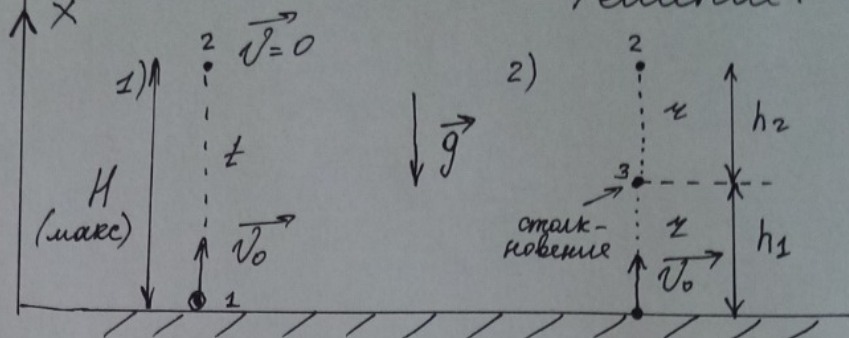 Решение:
X
1)
2
V=0
H
(макс)
t
V₀
1
g
2)
2
τ
h₂
3
столк-
новение
τ
h₁
V₀